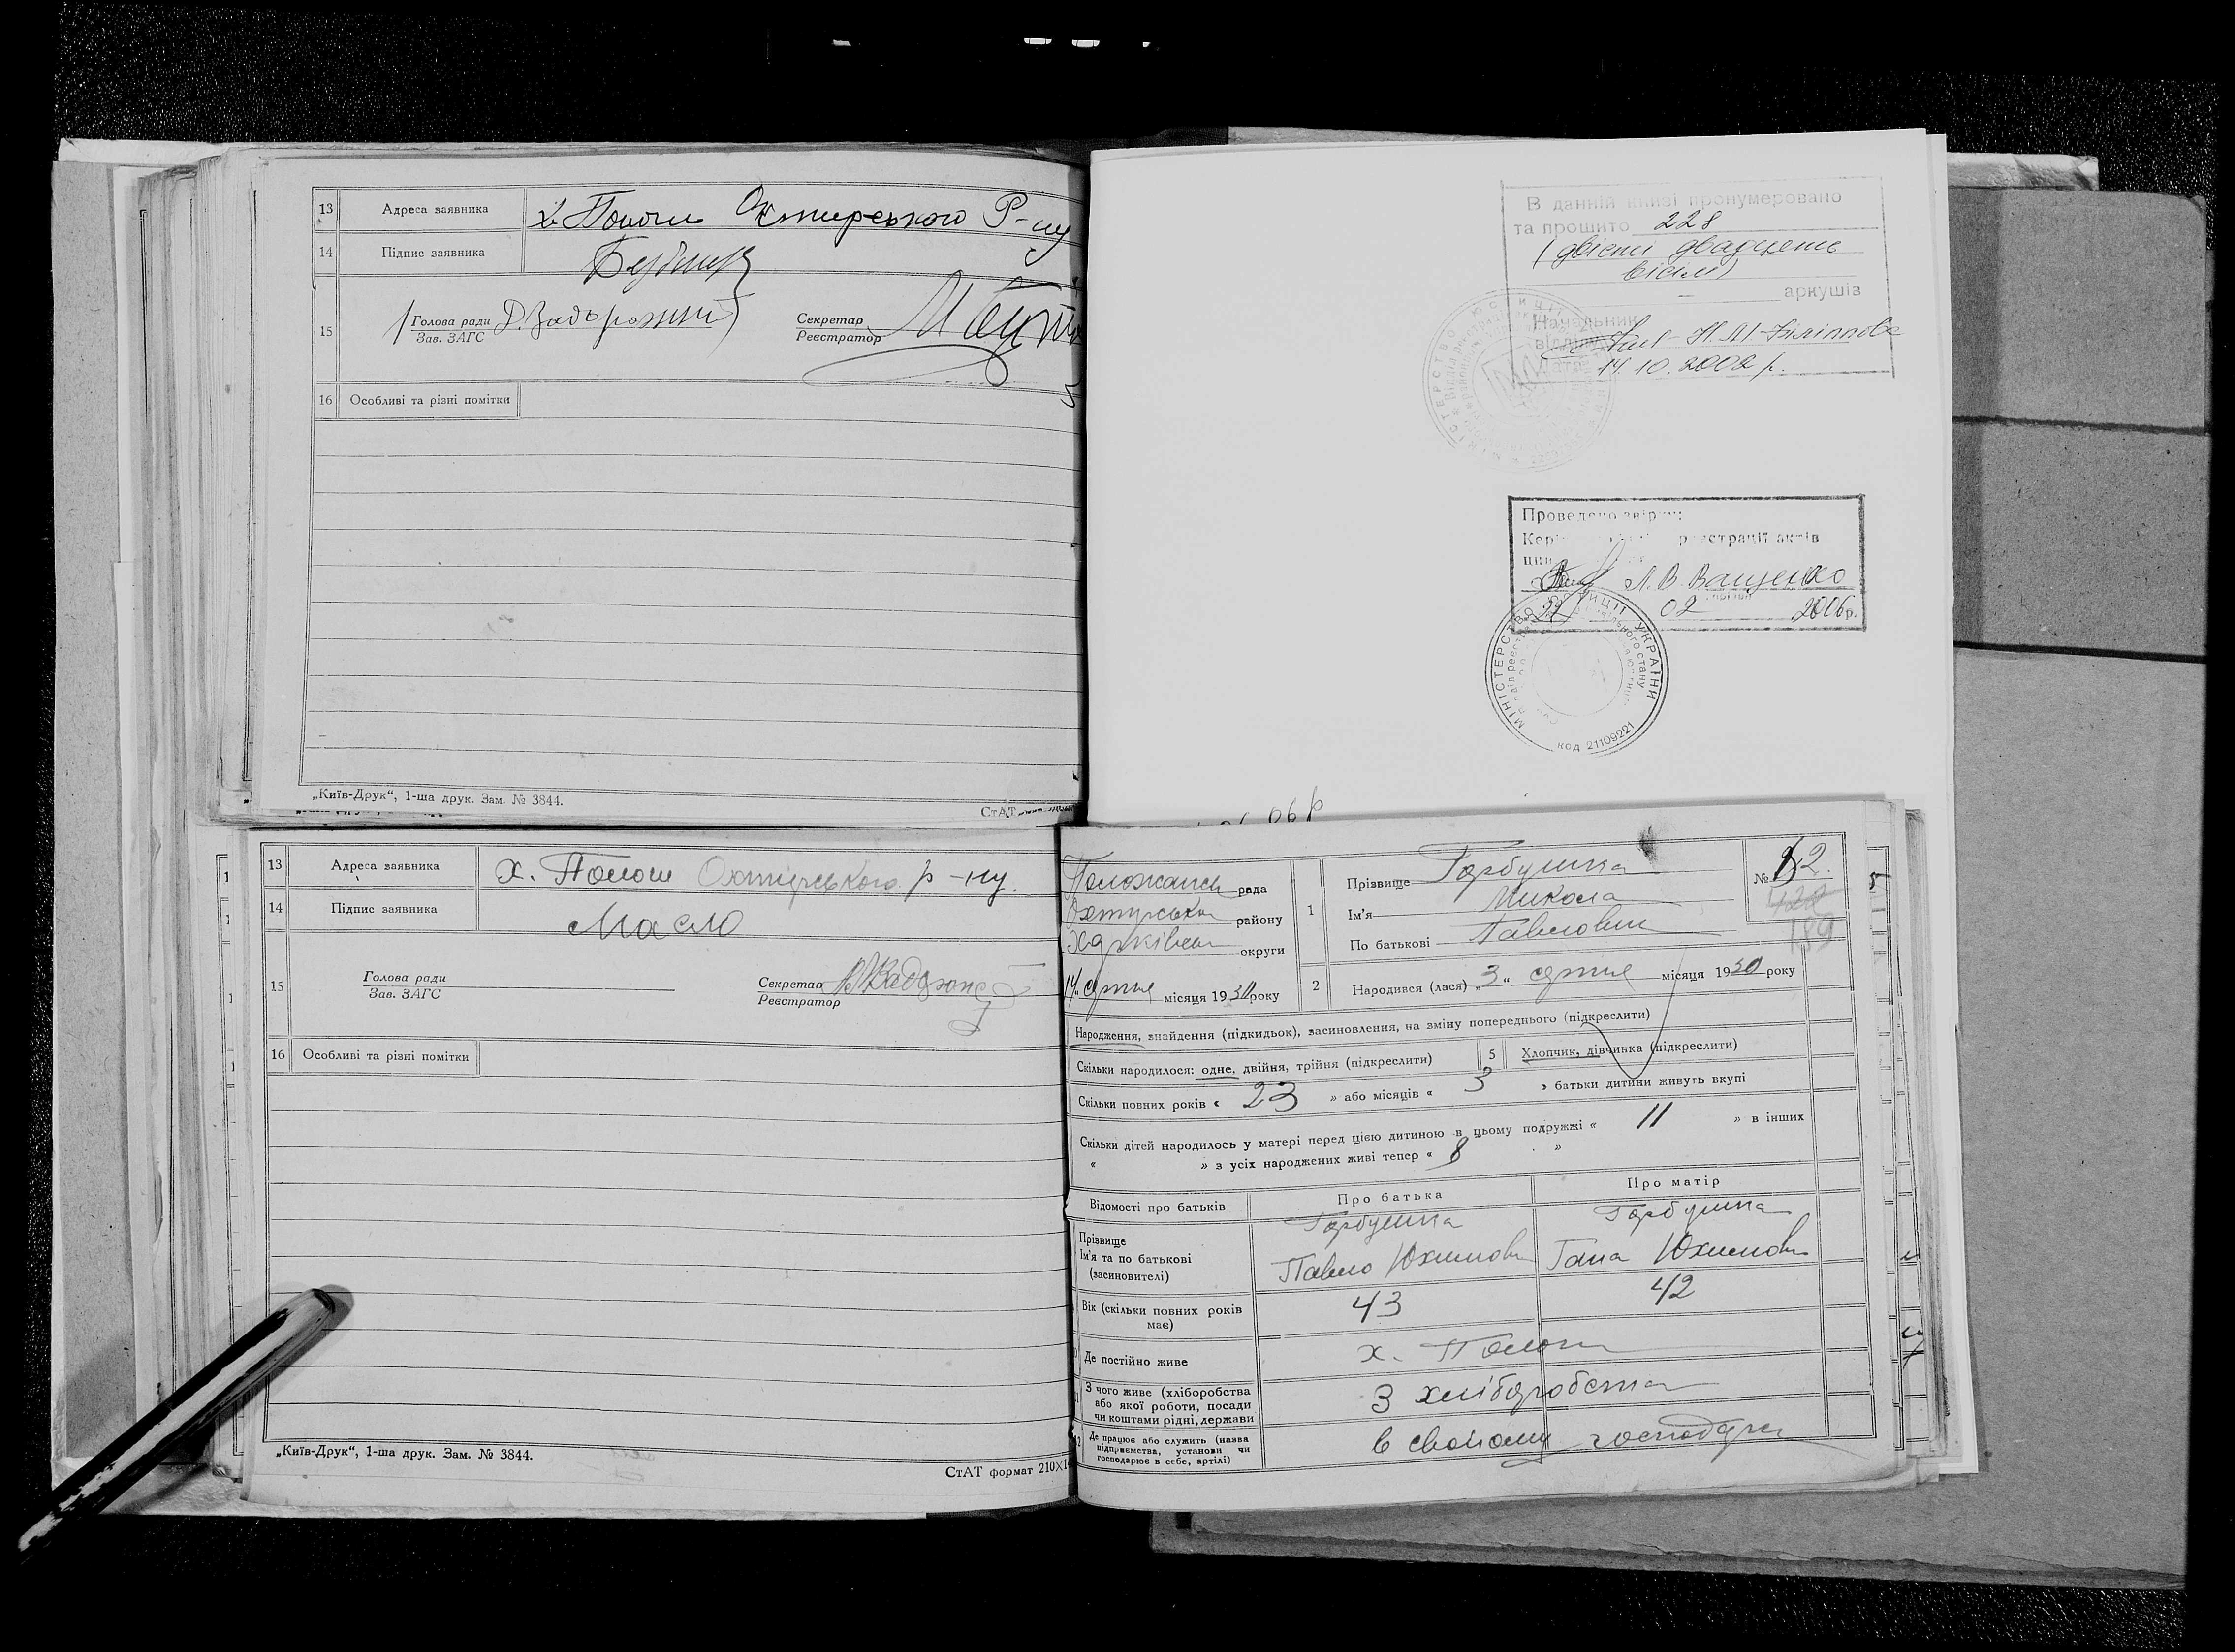 13 Адреса заявника х. Полози Охтирського Р-ну
14 Підпис заявника
15 Голова ради Д. Задорожний Секретар
Зав. ЗАГС Реєстратор
16 Особливі та різні помітки
„Київ-Друк“, 1-ша друк. Зам. № 3844.
СтАТ
В данній книзі пронумеровано
та прошито 228
(двісті двадцять
вісім)
аркушів
Начальник
відділу
14.10.2002 р.
Проведено звірку:
реєстрації актів
Л.В. Ващенко
27 02 2006р.
МІНІСТЕРСТВО ЮСТИЦІЇ УКРАЇНИ
код 21109221
06 р
13 Адреса заявника х. Полози Охтирського р-ну.
14 Підпис заявника Масло
15 Голова ради Секретар
Зав. ЗАГС Реєстратор
16 Особливі та різні помітки
„Київ-Друк“, 1-ша друк. Зам. № 3844.
СтАТ формат 210×1
рада
району
округи
14 серпня місяця 1930 року
1 Прізвище Горбушка
Ім'я Микола
По батькові Павлович
№ 82.
189
2 Народився (лася) „3“ серпня місяця 1930 року
Народження, знайдення (підкидьок), засиновлення, на зміну попереднього (підкреслити)
Скільки народилося: одне, двійня, трійня (підкреслити) 5 Хлопчик, дівчинка (підкреслити)
Скільки повних років « 23 » або місяців « 3 » батьки дитини живуть вкупі
Скільки дітей народилось у матері перед цією дитиною в цьому подружжі « 11 » в інших
« » з усіх народжених живі тепер « 8 »
Відомості про батьків Про батька Про матір
Прізвище Горбушка Горбушка
Ім'я та по батькові Павло Юхимович Гана Юхимовн
(засиновителі)
Вік (скільки повних років 43 42
має)
Де постійно живе х. Полози
З чого живе (хліборобства З хліборобства
або якої роботи, посади
чи коштами рідні, держави
Де працює або служить (назва в свойому господарс
підприємства, установи чи
господарює в себе, артілі)